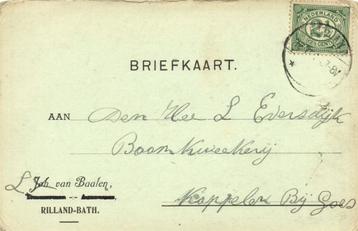 NEDERLAND
BRIEFKAART.
AAN Den Hee L Eversdijk
Boomkweekerij
Kappelen Bij Goes
L Joh van Baalen,
RILLAND-BATH.